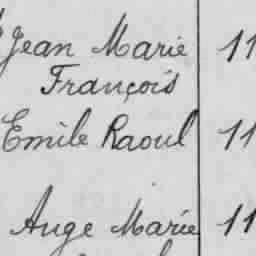 Jean Marie 11
François
Emile Raoul 11
Auge Marie 11